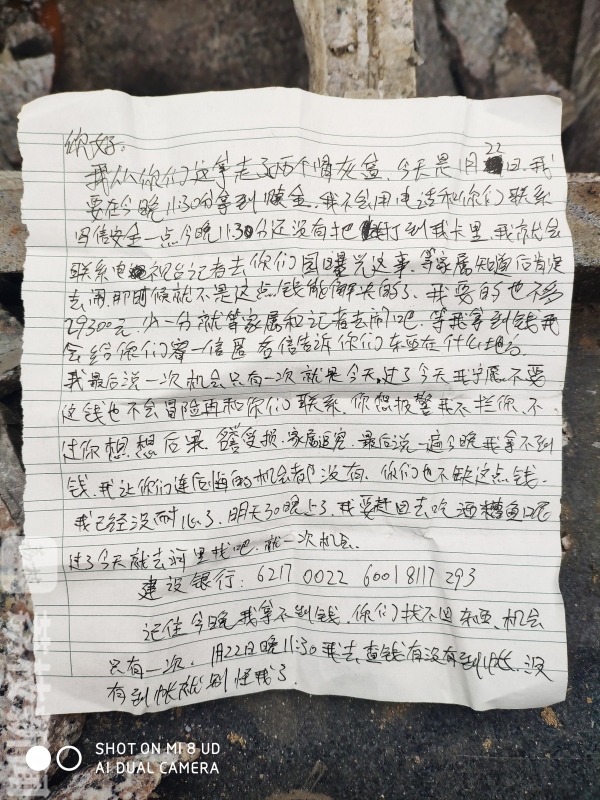 你好:
我从你们这拿走了两个骨灰盒,今天是1月22日,我
要在今晚11:30分拿到赎金,我不会用电话和你们联系
写信安全一点今晚11:30分还没有把打到我卡里,我就会
联系电视台记者去你们园曝光这事,等家属知道后肯定
去闹,那时候就不是这点钱能解决的了,我要的也不多
29300元,少一分就等家属和记者去闹吧,等我拿到钱我
会给你们寄一信匿名信告诉你们东西在什么地方
我最后说一次机会只有一次就是今天,过了今天我宁愿不要
这钱也不会冒险再和你们联系,你想报警我不拦你,不
过你想想后果,名誉受损,家属追究,最后说一遍今晚我拿不到
钱,我让你们连后悔的机会都没有,你们也不缺这点钱,
我已经没耐心了,明天30晚上了,我要赶回去吃酒糟鱼呢
过了今天就去河里找吧,就一次机会.
建设银行:6217 0022 6001 8117 293
记住今晚我拿不到钱,你们找不回东西,机会
只有一次,1月22日晚11:30我去查钱有没有到帐,没
有到帐就别怪我了.
SHOT ON MI 8 UD
AI DUAL CAMERA